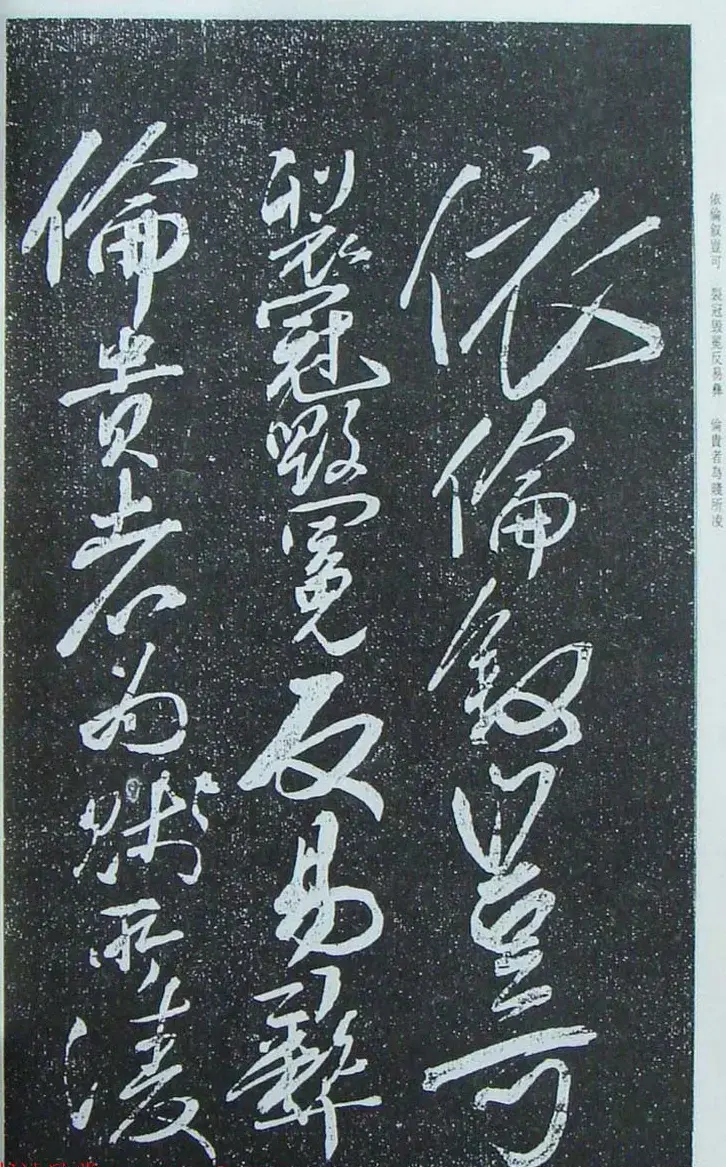 依倫叙豈可
裂冠毀冕反易彝
倫貴者為賤所凌
依倫叙豈可 裂冠毀冕反易彝 倫貴者為賤所凌